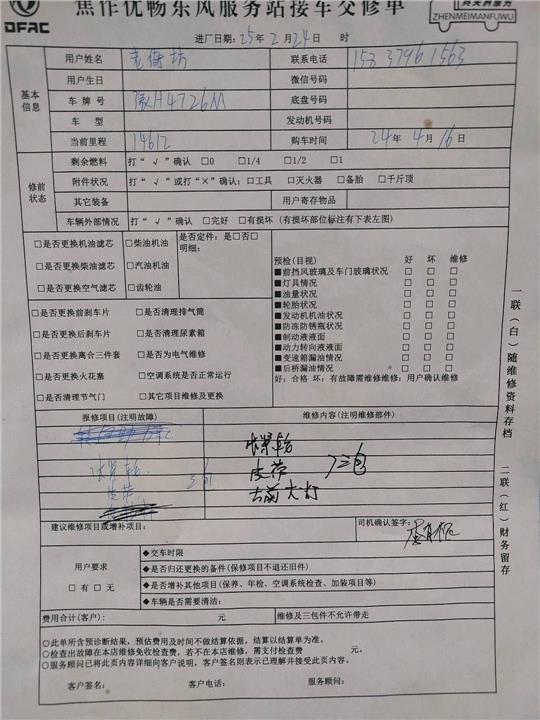 焦作优畅东风服务站接车交修单
DFAC
ZHENMEIMANFUWU
进厂日期：25年2月24日 时
用户姓名 联系电话
用户生日 微信号码
基本信息
车牌号 H4726M 底盘号码
车型 发动机号码
当前里程 14612 购车时间 24年4月16日
剩余燃料 打“√”确认 □0 □1/4 □1/2 □1
修前状态
附件状况 打“√”或打“×”确认：□工具 □灭火器 □备胎 □千斤顶
其它装备 用户寄存物品
车辆外部情况 打“√”确认 □完好 □有损坏（有损坏部位标注有下表左图）
□是否更换机油滤芯 □柴油机油 是否定件：是□否□
明细：
□是否更换柴油滤芯 □汽油机油
□是否更换空气滤芯 □齿轮油
预检（目视） 好 坏 维修
■前挡风玻璃及车门玻璃状况 □ □ □
■灯具情况 □ □ □
■油量状况 □ □ □
■轮胎状况 □ □ □
■发动机机油状况 □ □ □
■防冻防锈瓶状况 □ □ □
■制动液液面 □ □ □
■动力转向液液面 □ □ □
■变速箱漏油情况 □ □ □
■后桥漏油情况 □ □ □
好：合格 坏：有故障需维修维修：用户确认维修
□是否更换前刹车片 □是否清理排气筒
□是否更换后刹车片 □是否清理尿素箱
□是否更换离合三件套 □是否为电气维修
□是否更换火花塞 □空调系统是否正常运行
□是否清理节气门 □其它项目维修及更换
一联（白）随维修资料存档
二联（红）财务留存
报修项目（注明故障） 维修内容（注明维修部件）
皮带 三包
皮带 三包
右前大灯
建议维修项目或增补项目： 司机确认签字：
用户要求
□有 □无
◆交车时限
◆是否归还更换的备件（保修项目不退还旧件）
◆是否增补其他项目（保养、年检、空调系统检查、加装项目等）
◆车辆是否需要清洁：
费用合计（客户）： 元 维修及三包件不允许带走
○此单所含预诊断结果，预估费用及时间不做结算依据，结算以结算单为准。
○检查出故障在本店维修免收检查费，若不在本店维修，需支付检查费 元。
○服务顾问已将此页内容详细向客户说明，客户签名则表示已理解并接受此页内容。
客户签名： 客户电话： 服务顾问：